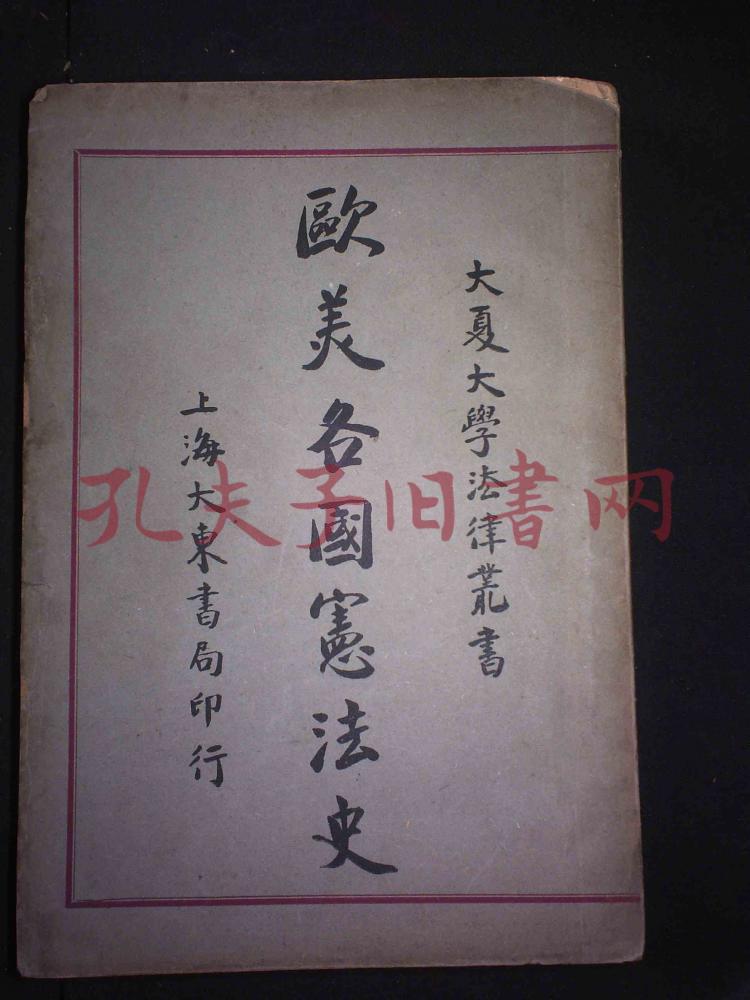 大夏大學法律叢書
歐美各國憲法史
上海大東書局印行
孔夫子旧書网